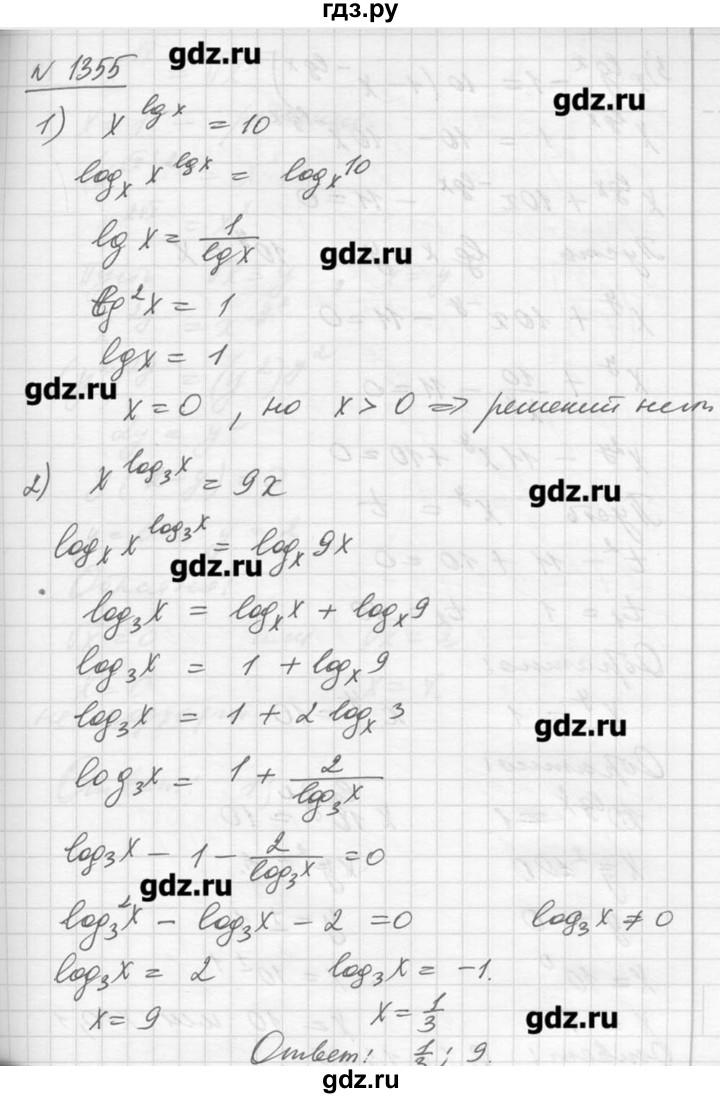 гдз.ру
gdz.ru
№ 1355
gdz.ru
1) x^{lg x} = 10
log_x x^{lg x} = log_x 10
lg x = \frac{1}{lg x}
gdz.ru
lg²x = 1
lg x = 1
gdz.ru
x = 0 , но x > 0 => решений нет
2) x^{log₃x} = 9x
gdz.ru
log_x x^{log₃x} = log_x 9x
gdz.ru
log₃x = log_x x + log_x 9
log₃x = 1 + log_x 9
log₃x = 1 + 2 log_x 3
gdz.ru
log₃x = 1 + \frac{2}{log₃x}
log₃x − 1 − \frac{2}{log₃x} = 0
gdz.ru
log₃²x − log₃x − 2 = 0 log₃x ≠ 0
log₃x = 2 log₃x = −1.
x = 9 x = \frac{1}{3}
gdz.ru
Ответ: \frac{1}{3} ; 9.
gdz.ru